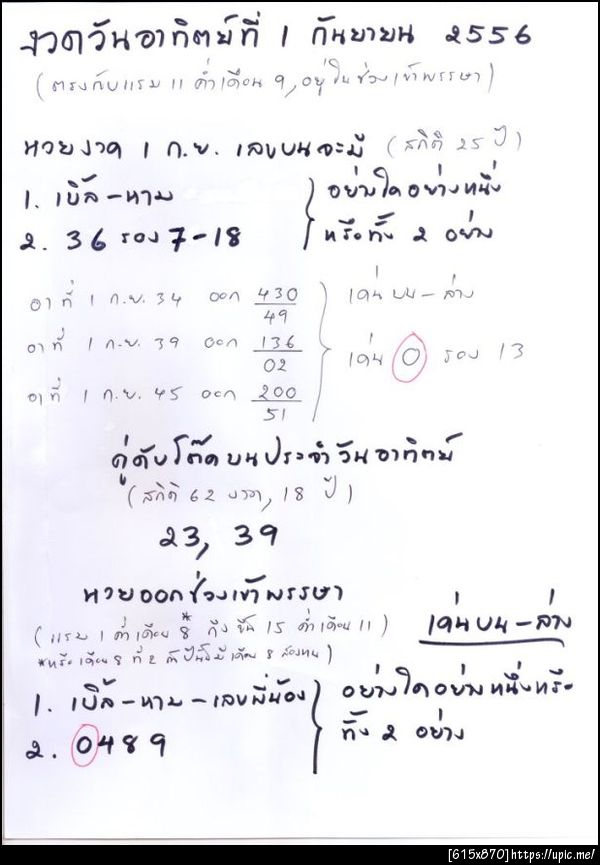 งวดวันอาทิตย์ที่ 1 กันยายน 2556
(ตรงกับแรม 11 ค่ำเดือน 9, อยู่ในช่วงเข้าพรรษา)
หวยงวด 1 ก.ย. เลขบนจะมี (สถิติ 25 ปี)
1. เบิ้ล-หาม } อย่างใดอย่างหนึ่ง
2. 36 รอง 7-18 หรือทั้ง 2 อย่าง
อาที่ 1 ก.ย. 34 ออก 430/49 } เด่นบน-ล่าง
อาที่ 1 ก.ย. 39 ออก 136/02 เด่น 0 รอง 13
อาที่ 1 ก.ย. 45 ออก 200/51
คู่ดับโต๊ดบนประจำวันอาทิตย์
(สถิติ 62 งวด, 18 ปี)
23, 39
หวยออกช่วงเข้าพรรษา
(แรม 1 ค่ำเดือน 8* ถึงขึ้น 15 ค่ำเดือน 11) เด่นบน-ล่าง
*หรือเดือน 8 ที่ 2 ถ้าปีนั้นมีเดือน 8 สองหน)
1. เบิ้ล-หาม-เลขพี่น้อง } อย่างใดอย่างหนึ่งหรือ
2. 0489 ทั้ง 2 อย่าง
[615x870]https://upic.me/